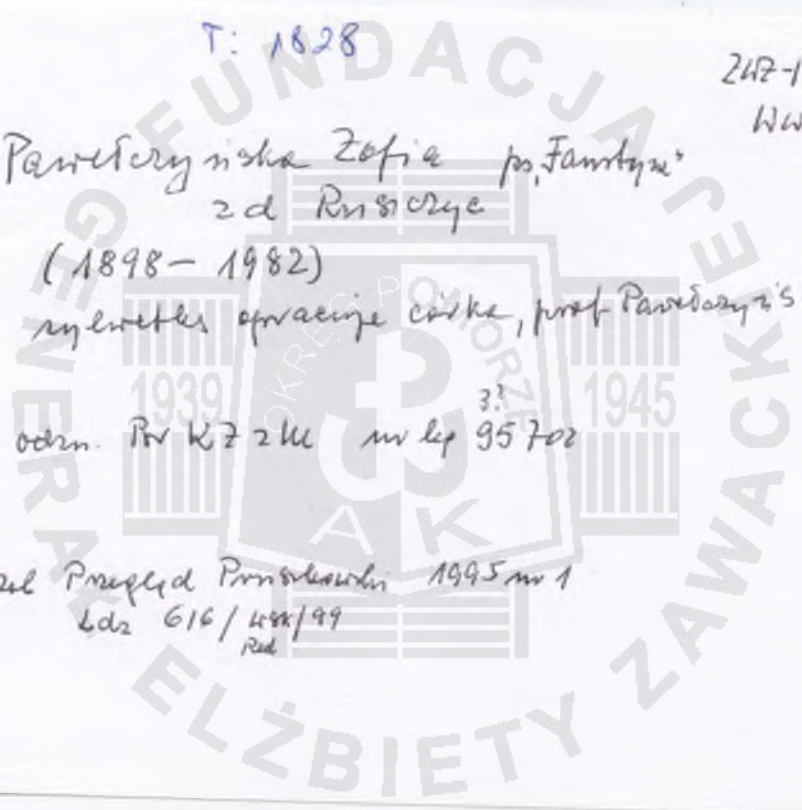 T: 1828
ZWZ-
WW
Pawełczyńska Zofia ps. "Faustyna"
z d Rusiczyc
(1898 – 1982)
sylwetkę opracuje córka, prof Pawełczyńs
3?
odzn. Por KZ z M nr leg 95702
Przegląd Pruszkowski 1995 nr 1
Ldz 616/WSK/99
Red
FUNDACJA
GENERAŁ
ELŻBIETY ZAWACKIEJ
OKRĘG POMORZE
1939
1945
AK